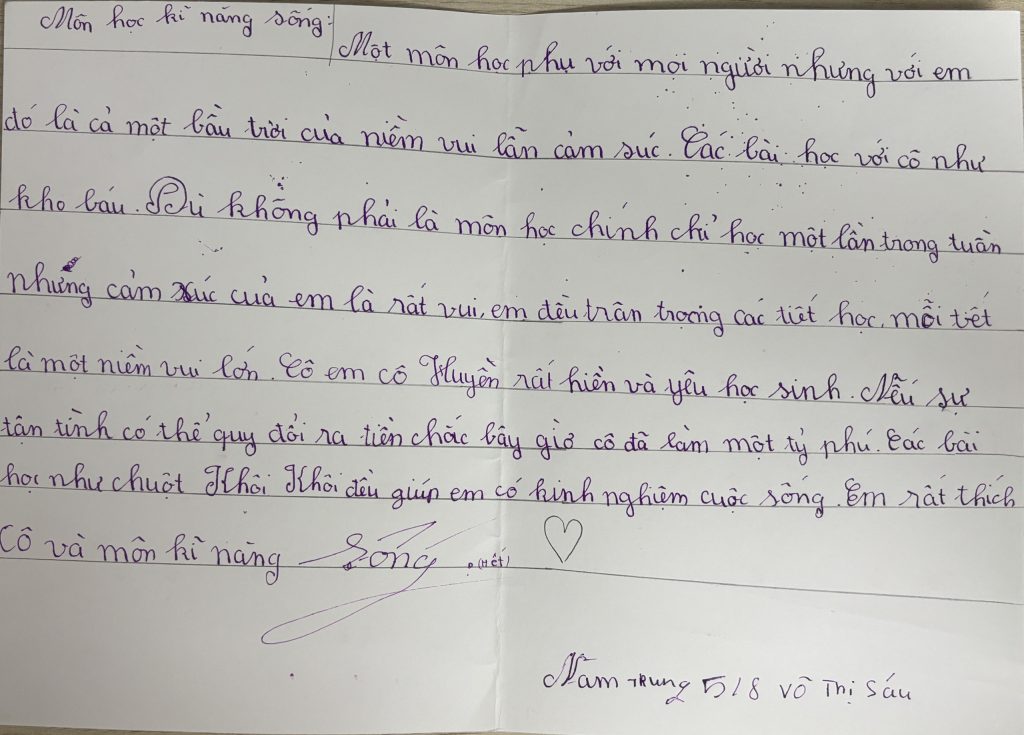 Môn học kĩ năng sống:
Một môn học phụ với mọi người nhưng với em
đó là cả một bầu trời của niềm vui lẫn cảm súc. Các bài học với cô như
kho báu. Dù không phải là môn học chính chỉ học một lần trong tuần
nhưng cảm xúc của em là rất vui, em đều trân trọng các tiết học, mỗi tết
là một niềm vui lớn. Cô em cô Huyền rất hiền và yêu học sinh. Nếu sự
tận tình có thể quy đổi ra tiền chắc bây giờ cô đã làm một tỷ phú. Các bài
học như chuột Khôi Khôi đều giúp em có kinh nghiệm cuộc sống. Em rất thích
Cô và môn kĩ năng sống. (Hết)
Nam Trung 5/8 Võ Thị Sáu